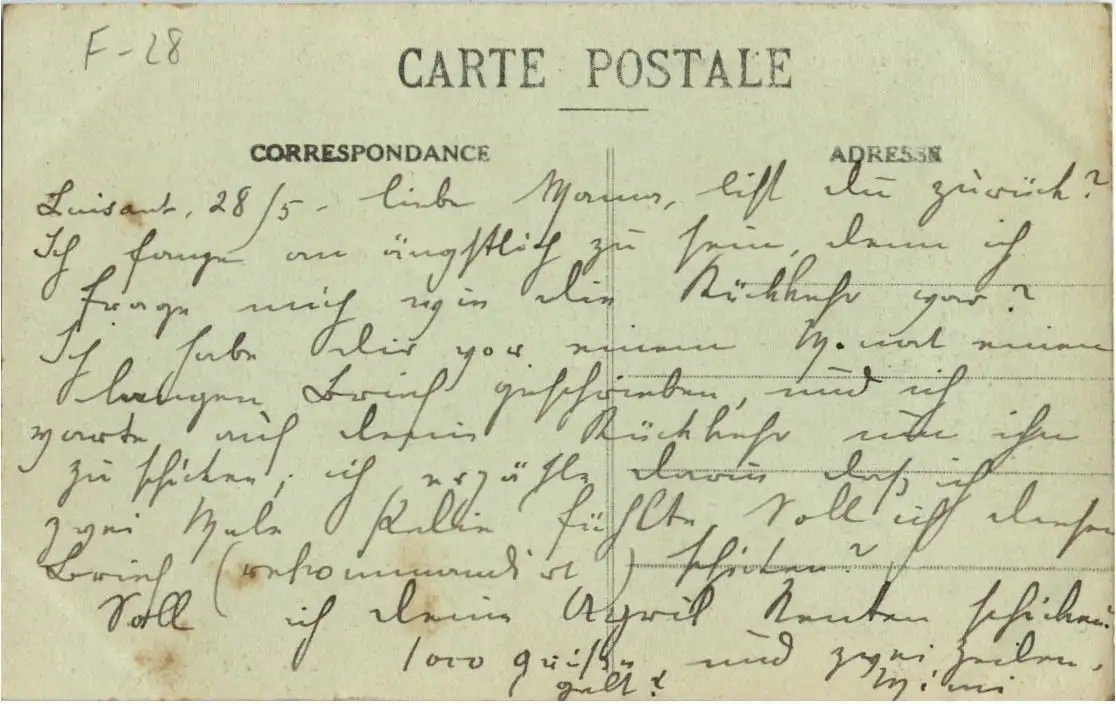 F-28
CARTE POSTALE
CORRESPONDANCE
ADRESSE
Luisant, 28/5. liebe Mama, bist du zurück?
Ich fange an ängstlich zu sein, denn ich
frage mich wie die Rückkehr war?
Ich habe dir vor einem Monat einen
langen Brief geschrieben, und ich
warte auf deine Rückkehr um ihn
zu schicken; ich erzähle darin daß ich
zwei Male fühlte. Soll ich diesen
Brief (rekommandirt) schicken?
Soll ich deine April Renten schicken?
1000 Grüße und zwei Zeilen.
gelt? Mimi